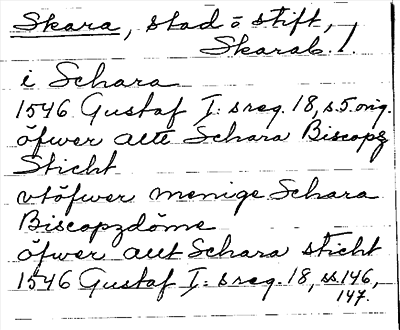 Skara, stad o stift,
Skarab. l.
i Schara
1546 Gustaf I: s reg. 18, s. 5. orig.
öfwer altt Schara Biscopz
Sticht
vtöfwer menige Schara
Biscopzdöme
öfwer altt Schara sticht
1546 Gustaf I: s reg. 18, ss. 146,
147.